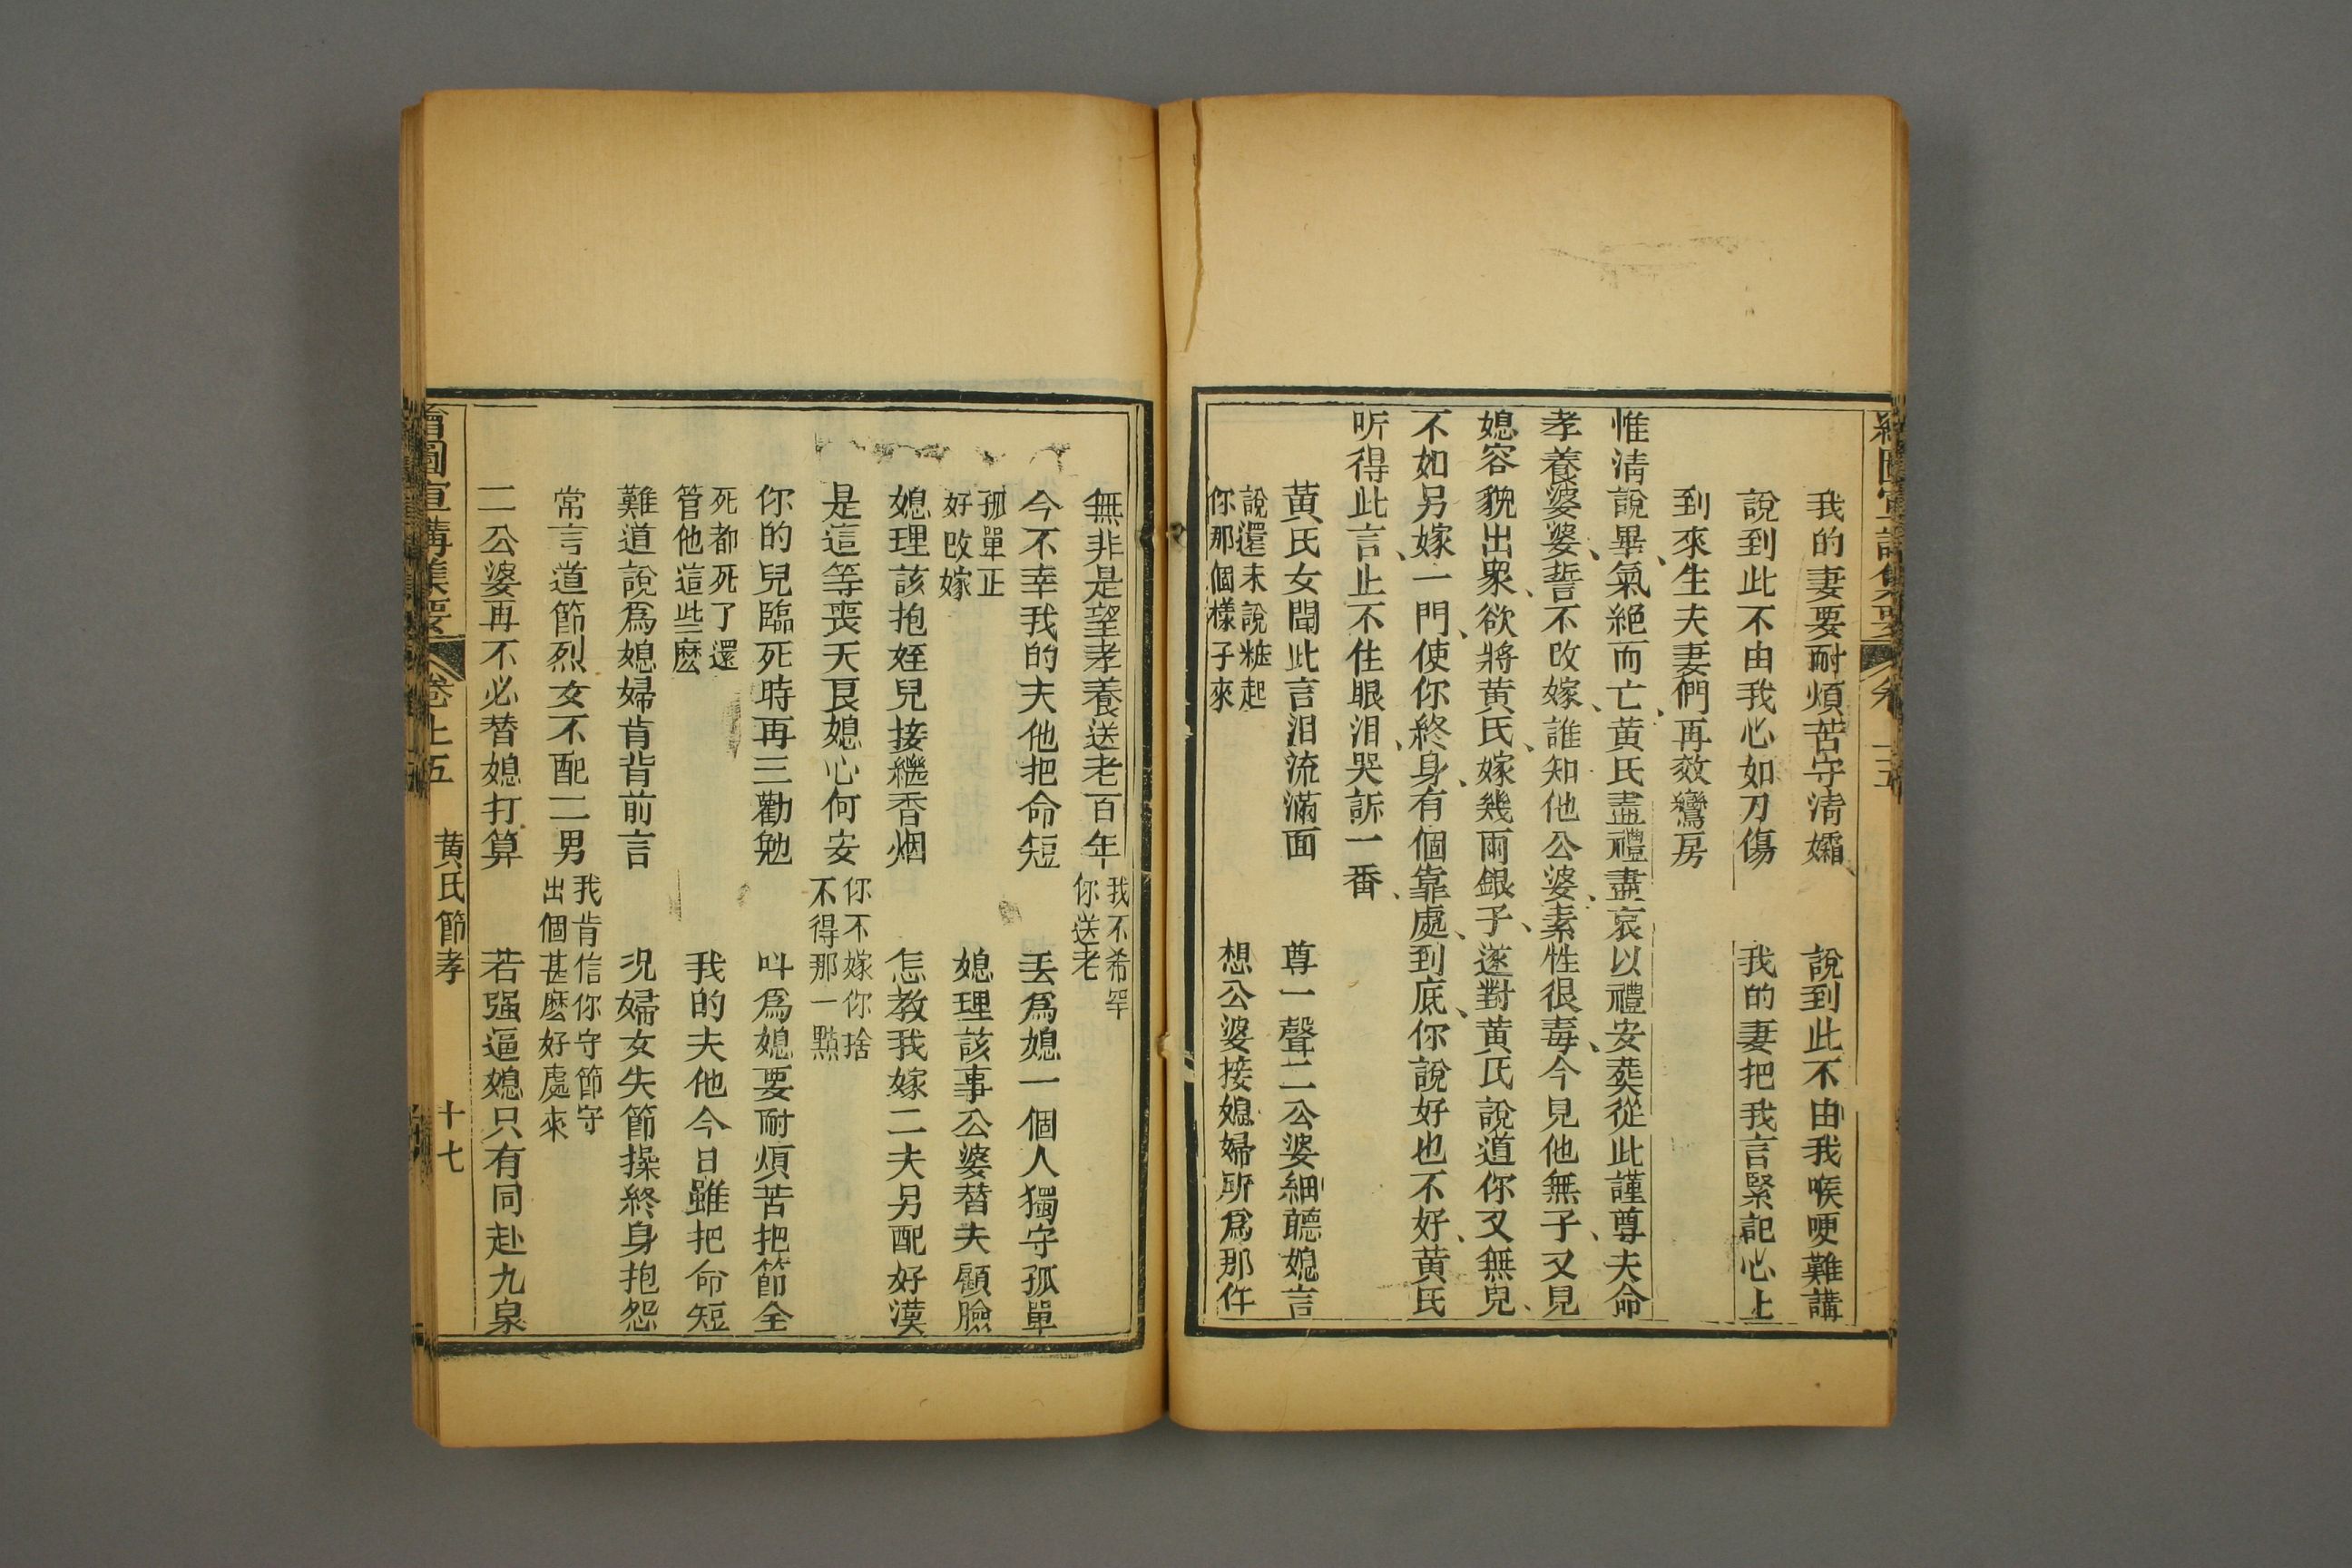 我的妻要耐煩苦守清孀　說到此不由我喉哽難講
說到此不由我心如刀傷　我的妻把我言緊記心上
到來生夫妻們再效鸞房
惟清說畢、氣絕而亡、黃氏盡禮盡哀以禮安葬從此謹尊夫命
孝養婆婆、誓不改嫁、誰知他公婆、素性很毒、今見他無子、又見
媳容貌出衆、欲將黃氏、嫁幾兩銀子、遂對黃氏說道你又無兒、
不如另嫁一門、使你終身、有個靠處、到底、你說好也不好、黃氏
听得此言、止不住眼泪、哭訴一番、
黃氏女聞此言泪流滿面　尊一聲二公婆細聽媳言
說還未說粧起
你那個樣子來
想公婆接媳婦所爲那件
無非是望孝養送老百年
我不希罕
你送老
丟爲媳一個人獨守孤單
今不幸我的夫他把命短
孤單正
好改嫁
媳理該事公婆替夫顧臉
媳理該抱姪兒接繼香烟　怎教我嫁二夫另配好漢
是這等喪天良媳心何安
你不嫁你捨
不得那一點
你的兒臨死時再三勸勉　叫爲媳要耐煩苦把節全
死都死了還
管他這些麽
我的夫他今日雖把命短
難道說爲媳婦肯背前言　况婦女失節操終身抱怨
常言道節烈女不配二男
我肯信你守節守
出個甚麽好處來
二公婆再不必替媳打算　若强逼媳只有同赴九泉
圖宣講集要　卷上五　黃氏節孝　十七